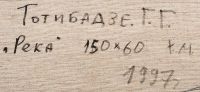 Тотибадзе. Г. Г.
„Река" 150×60 х.м.
1997г.